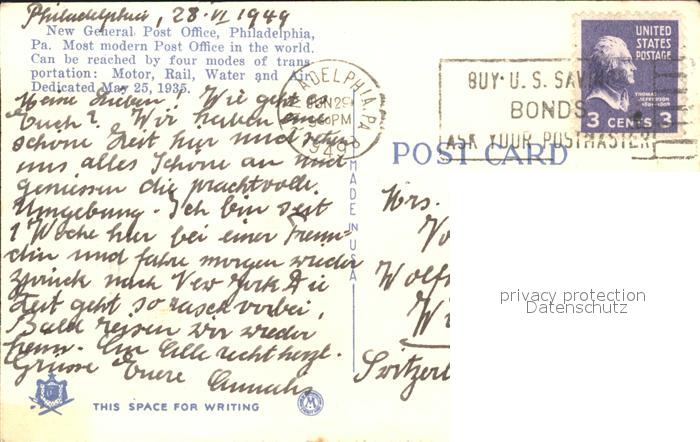 Philadelphia, 28. VI 1949
New General Post Office, Philadelphia,
Pa. Most modern Post Office in the world.
Can be reached by four modes of trans-
portation: Motor, Rail, Water and Air
Dedicated May 25, 1935.
Meine Lieben! Wie geht es
Euch? Wir haben eine
schöne Zeit hier und sehen
uns alles Schöne an und
geniessen die prachtvolle
Umgebung. Ich bin seit
1 Woche hier bei einer Freun-
din und fahre morgen wieder
zurück nach New York. Die
Zeit geht so rasch vorbei,
Bald reisen wir wieder
heim. An Alle recht herzl.
Grüsse Euere
THIS SPACE FOR WRITING
MADE IN USA
PHILADELPHIA, PA.
JUN 29
PM
1949
BUY U. S. SAVINGS
BONDS
ASK YOUR POSTMASTER
UNITED
STATES
POSTAGE
THOMAS
JEFFERSON
3 CENTS 3
POST CARD
Mrs.
Vo
Wolf
Wi
Switzerl
privacy protection
Datenschutz